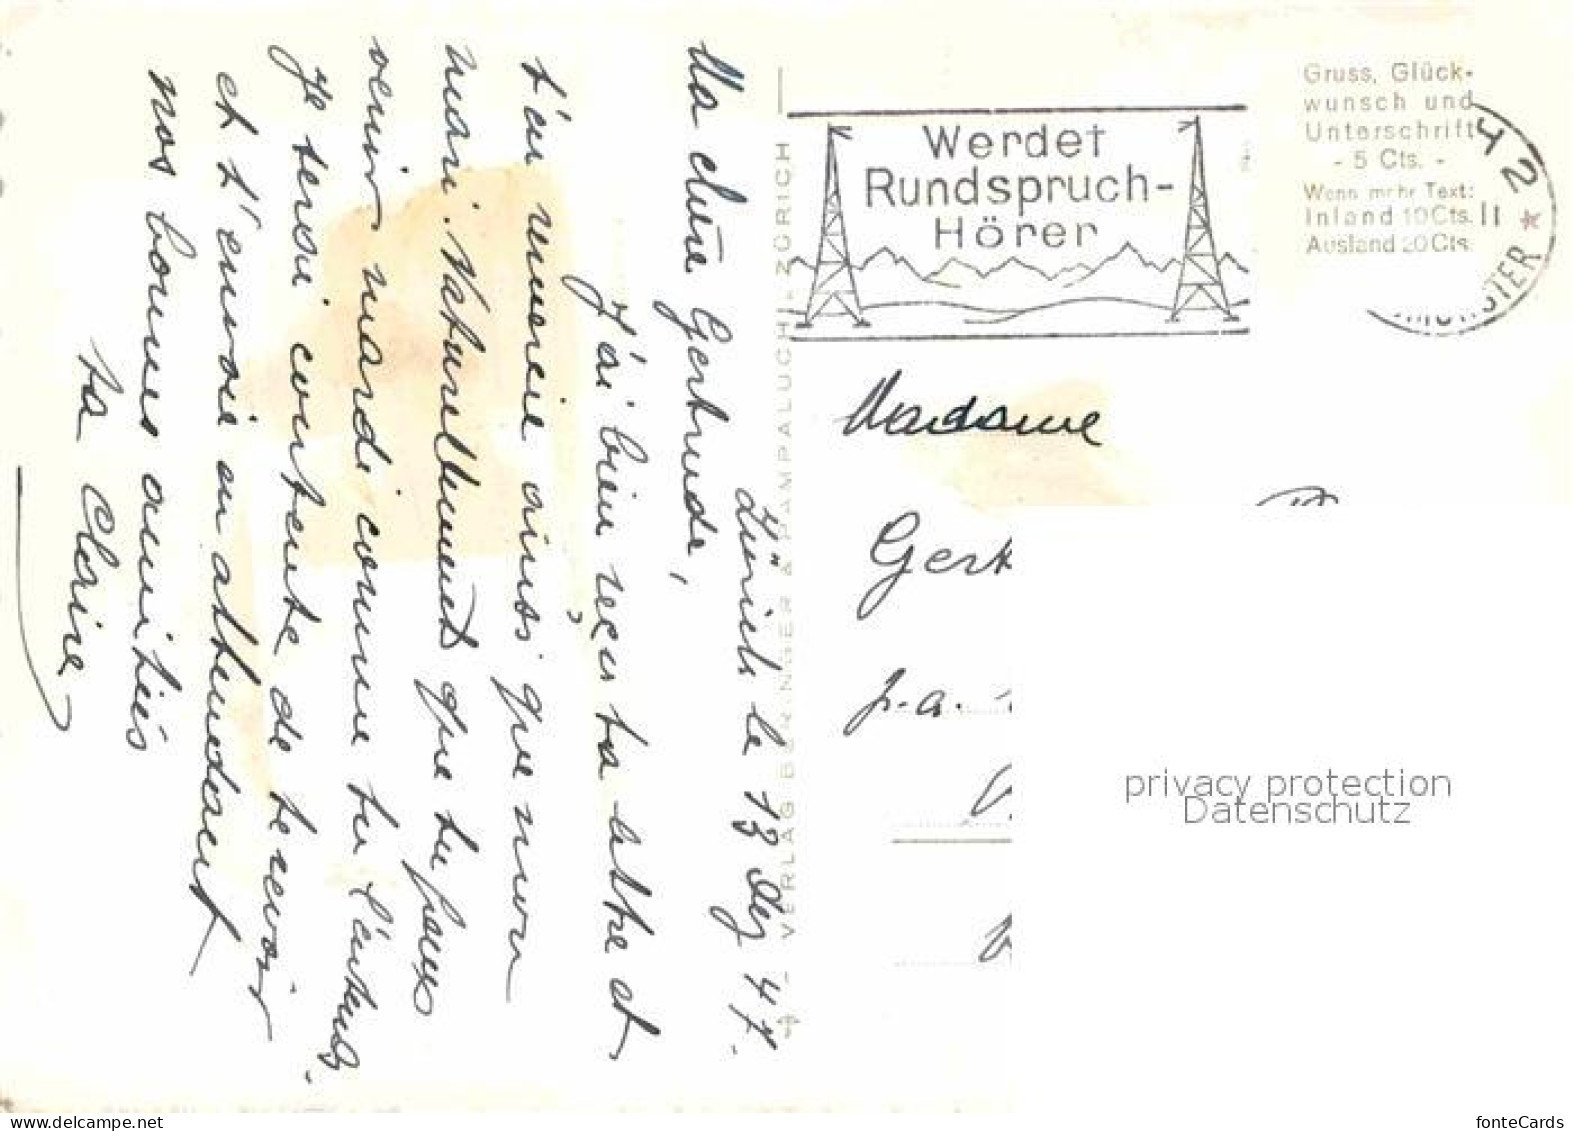 Zürich le 13 Dez 47.
Ma chère Gertrude,
J'ai bien reçu ta lettre et
t'en remercie ainsi que mon
mari. Naturellement que tu peux
venir mardi comme tu l'entends.
Je serai contente de te revoir
et t'envoie en attendant
nos bonnes amitiés
ta Claire
VERLAG BERINGER & PAMPALUCHI - ZÜRICH
Werdet
Rundspruch-
Hörer
Gruss, Glück-
wunsch und
Unterschrift
- 5 Cts. -
Wenn mehr Text:
Inland 10 Cts.
Ausland 20 Cts.
Madame
Gert
p.a.
privacy protection
Datenschutz
fonteCards